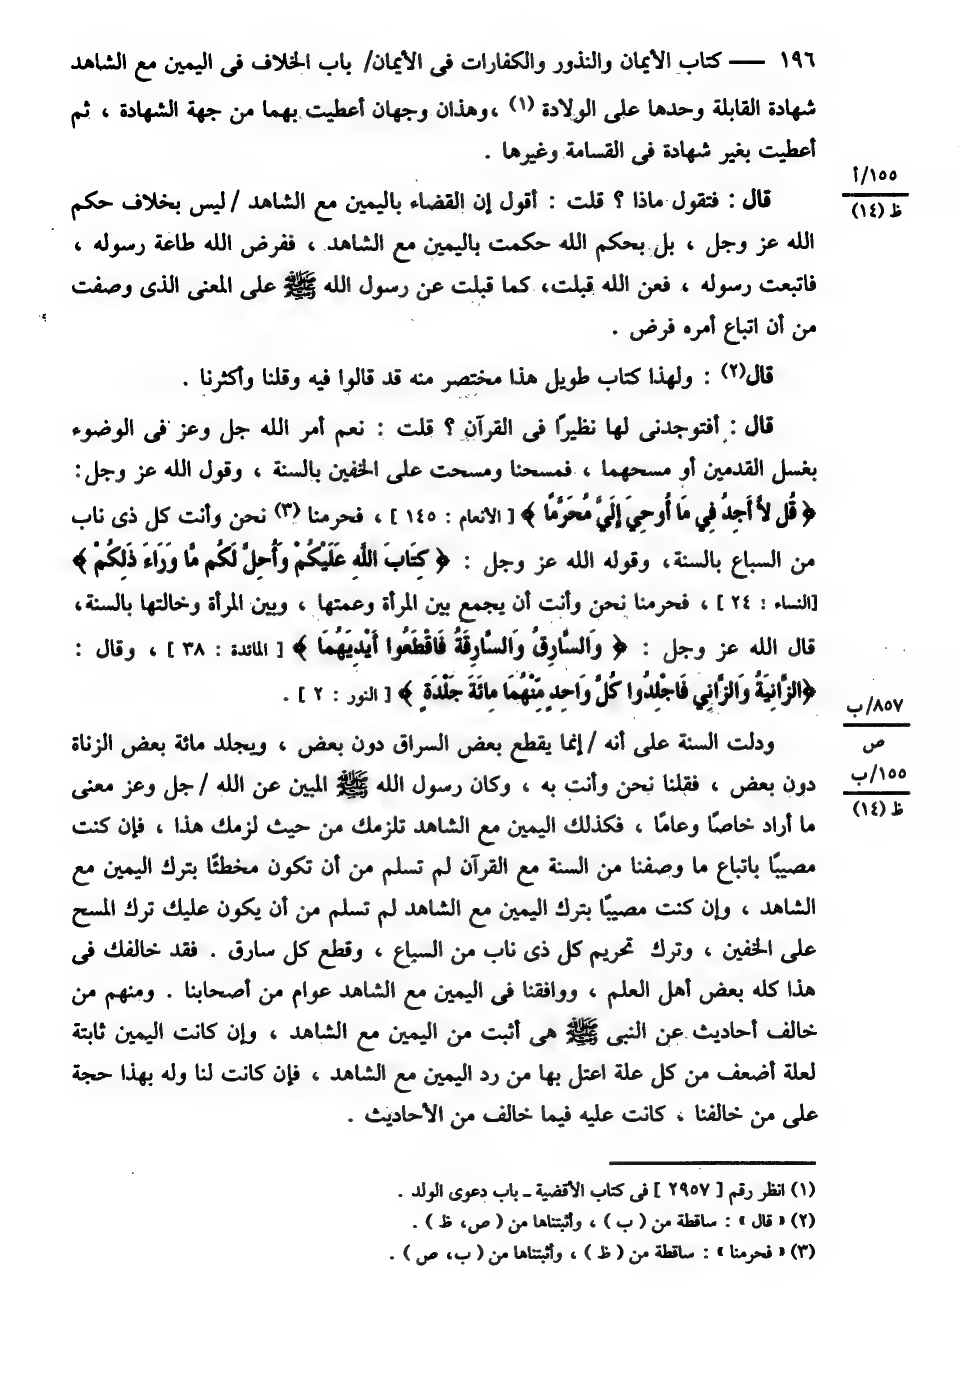 ١٩٦ ــــ كتاب الأيمان والنذور والكفارات فى الأيمان/ باب الخلاف فى اليمين مع الشاهد
شهادة القابلة وحدها على الولادة (١) ، وهذان وجهان أعطيت بهما من جهة الشهادة ، ثم
أعطيت بغير شهادة فى القسامة وغيرها .
١٥٥/أ
ظ (١٤)
قال : فتقول ماذا ؟ قلت : أقول إن القضاء باليمين مع الشاهد / ليس بخلاف حكم
الله عز وجل ، بل بحكم الله حكمت باليمين مع الشاهد ، ففرض الله طاعة رسوله ،
فاتبعت رسوله ، فعن الله قبلت، كما قبلت عن رسول الله ﷺ على المعنى الذى وصفت
من أن اتباع أمره فرض .
قال(٢) : ولهذا كتاب طويل هذا مختصر منه قد قالوا فيه وقلنا وأكثرنا .
قال : أفتوجدنى لها نظيرًا فى القرآن ؟ قلت : نعم أمر الله جل وعز فى الوضوء
بغسل القدمين أو مسحهما ، فمسحنا ومسحت على الخفين بالسنة ، وقول الله عز وجل:
﴿ قُل لاَّ أَجِدُ فِي مَا أُوحِيَ إِلَيَّ مُحَرَّمًا ﴾ [ الأنعام : ١٤٥ ] ، فحرمنا (٣) نحن وأنت كل ذى ناب
من السباع بالسنة، وقوله الله عز وجل : ﴿ كِتَابَ اللَّهِ عَلَيْكُمْ وَأُحِلَّ لَكُم مَّا وَرَاءَ ذَلِكُمْ ﴾
[النساء : ٢٤ ] ، فحرمنا نحن وأنت أن يجمع بين المرأة وعمتها ، وبين المرأة وخالتها بالسنة،
قال الله عز وجل : ﴿ وَالسَّارِقُ وَالسَّارِقَةُ فَاقْطَعُوا أَيْدِيَهُمَا ﴾ [ المائدة : ٣٨ ] ، وقال :
﴿الزَّانِيَةُ وَالزَّانِي فَاجْلِدُوا كُلَّ وَاحِدٍ مِّنْهُمَا مِائَةَ جَلْدَةٍ ﴾ [ النور : ٢ ] .
٨٥٧/ب
ص
١٥٥/ب
ظ (١٤)
ودلت السنة على أنه / إنما يقطع بعض السراق دون بعض ، ويجلد مائة بعض الزناة
دون بعض ، فقلنا نحن وأنت به ، وكان رسول الله ﷺ المبين عن الله / جل وعز معنى
ما أراد خاصًا وعامًا ، فكذلك اليمين مع الشاهد تلزمك من حيث لزمك هذا ، فإن كنت
مصيبًا باتباع ما وصفنا من السنة مع القرآن لم تسلم من أن تكون مخطئًا بترك اليمين مع
الشاهد ، وإن كنت مصيبًا بترك اليمين مع الشاهد لم تسلم من أن يكون عليك ترك المسح
على الخفين ، وترك تحريم كل ذى ناب من السباع ، وقطع كل سارق . فقد خالفك فى
هذا كله بعض أهل العلم ، ووافقنا فى اليمين مع الشاهد عوام من أصحابنا . ومنهم من
خالف أحاديث عن النبى ﷺ هى أثبت من اليمين مع الشاهد ، وإن كانت اليمين ثابتة
لعلة أضعف من كل علة اعتل بها من رد اليمين مع الشاهد ، فإن كانت لنا وله بهذا حجة
على من خالفنا ، كانت عليه فيما خالف من الأحاديث .
(١) انظر رقم [ ٢٩٥٧ ] فى كتاب الأقضية ـ باب دعوى الولد .
(٢) « قال » : ساقطة من ( ب ) ، وأثبتناها من ( ص، ظ ) .
(٣) « فحرمنا » : ساقطة من ( ظ ) ، وأثبتناها من ( ب، ص ) .